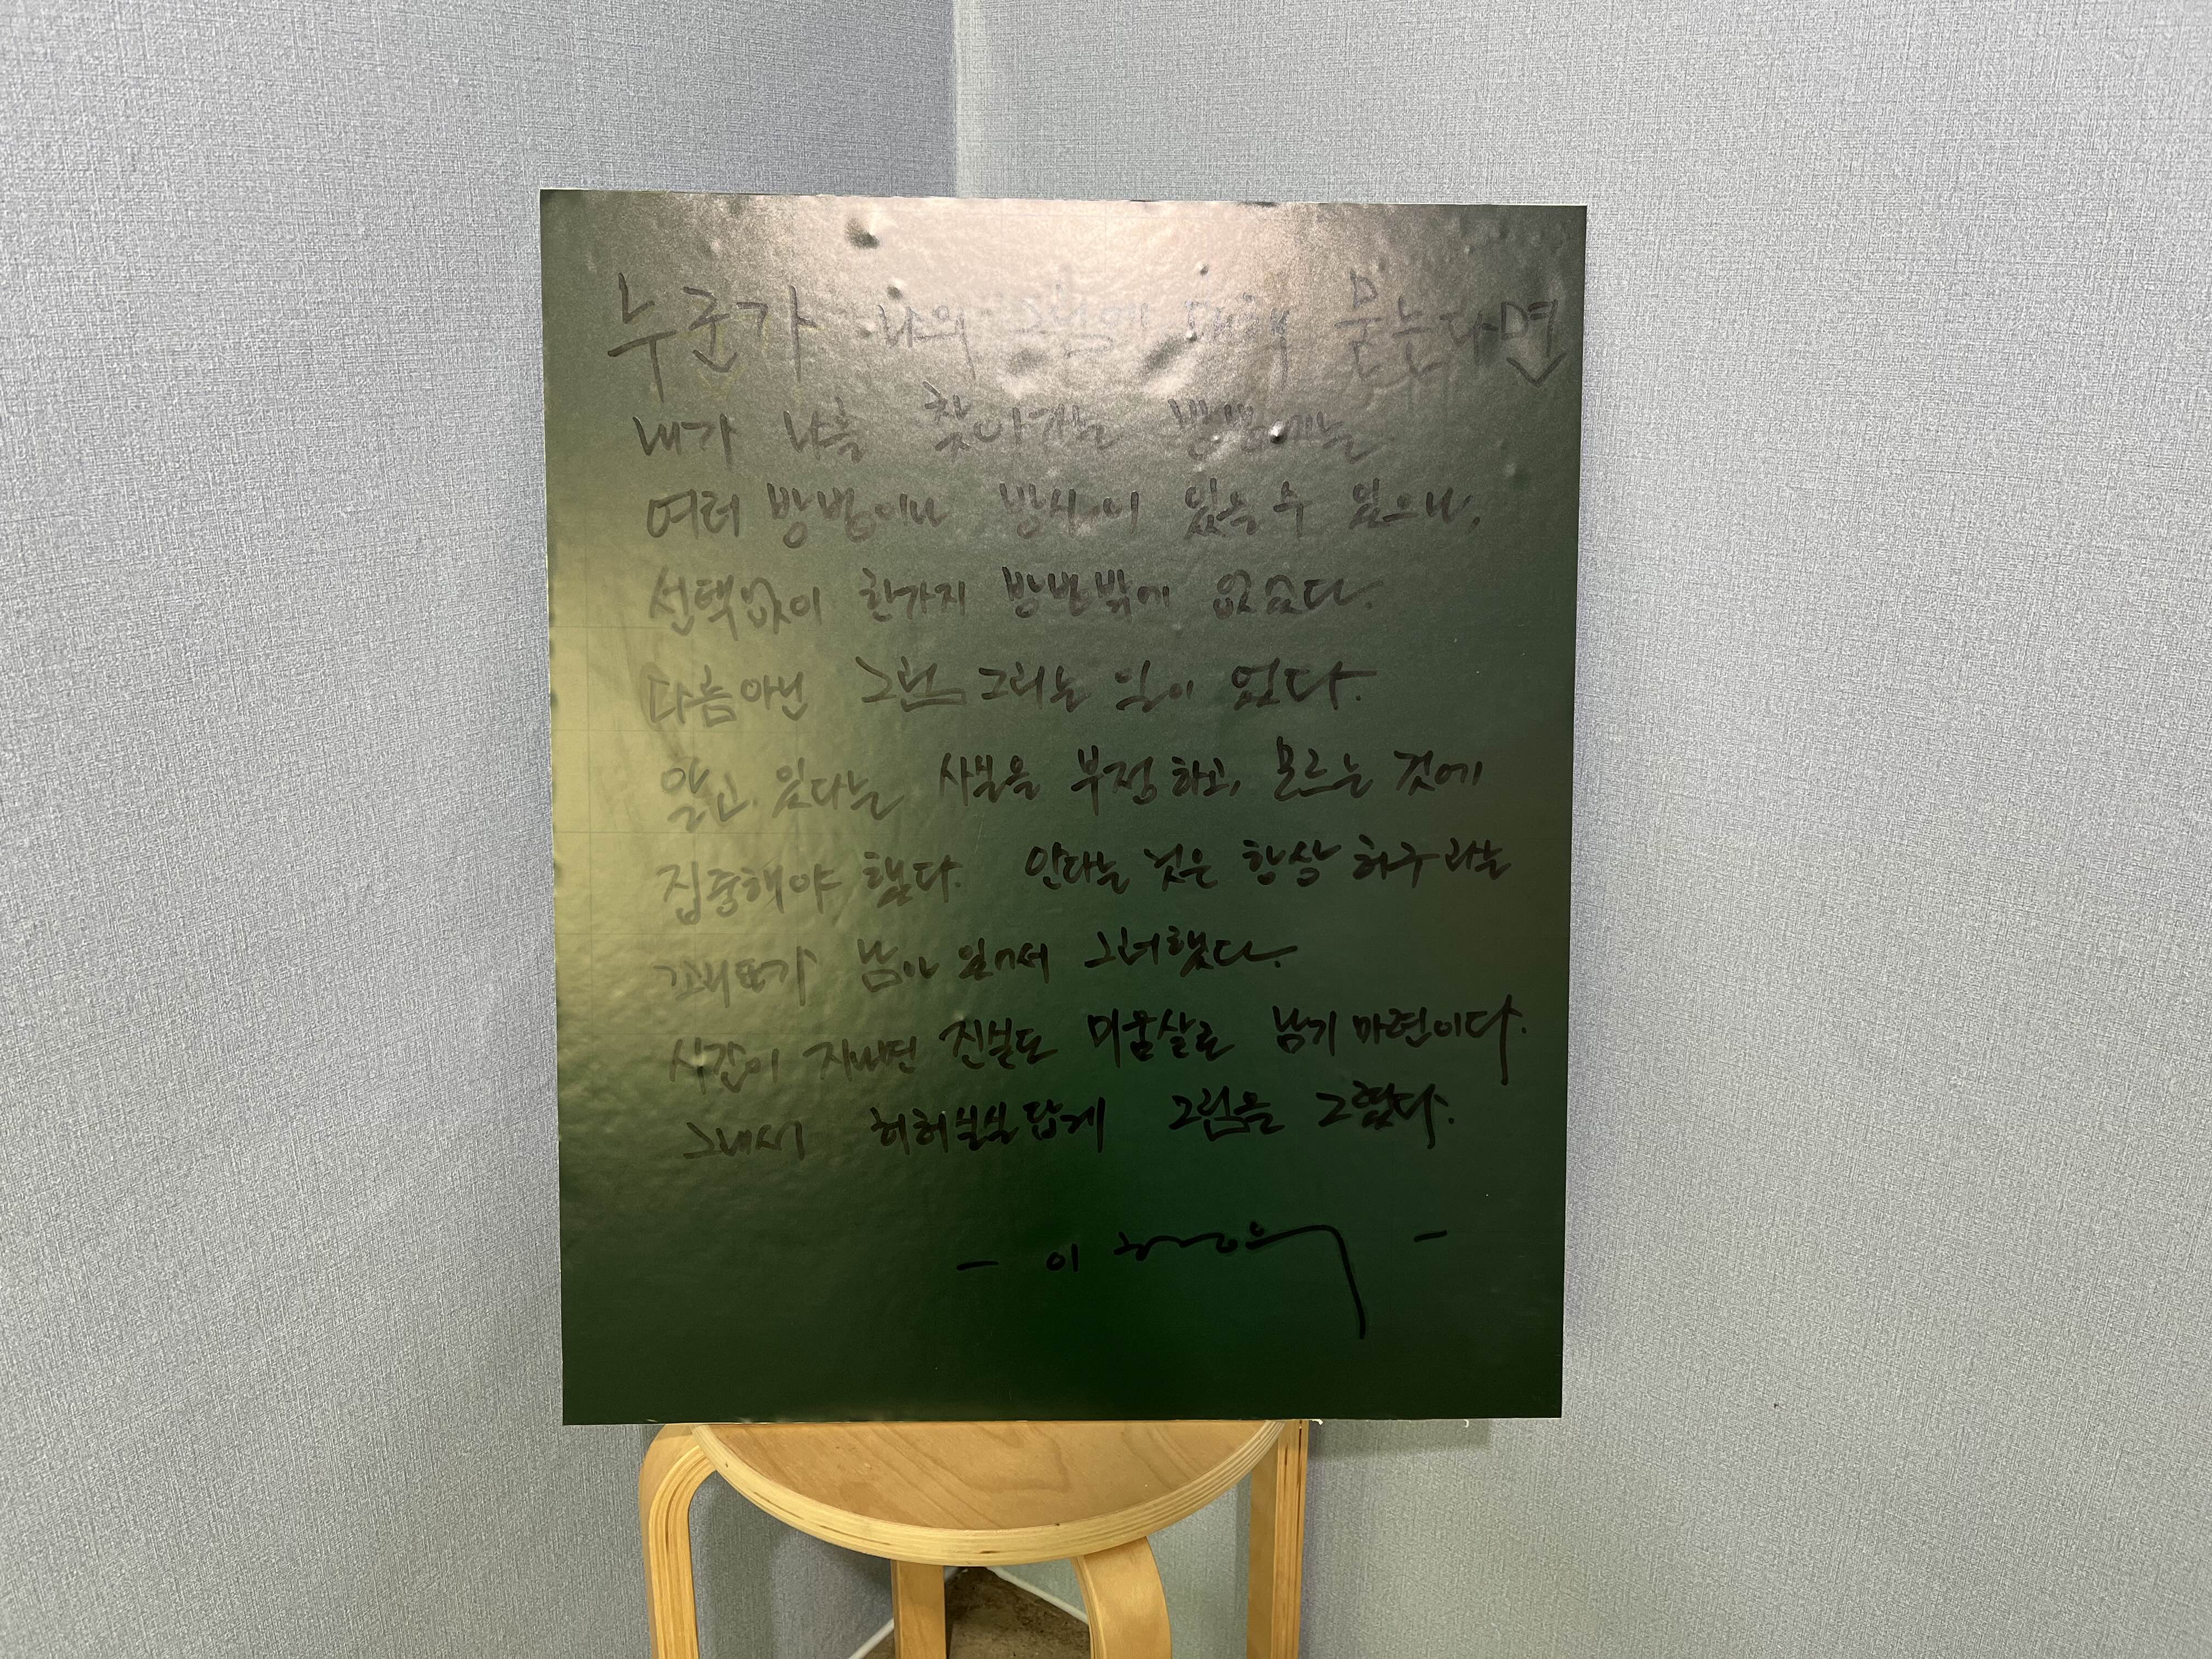 누군가 나의 그림에 대해 묻는다면
내가 나를 찾아가는 방법에는
여러 방법이나 방식이 있을 수 있으나,
선택없이 한가지 방법밖에 없었다.
다름아닌 그림 그리는 일이 였다.
알고 있다는 사실을 부정하고, 모르는 것에
집중해야 했다. 안다는 것은 항상 허구라는
꼬리표가 남아 있어서 그러했다.
시간이 지나면 진실도 미움살로 남기 마련이다.
그래서 허허실실답게 그림을 그렸다.
- 이 -